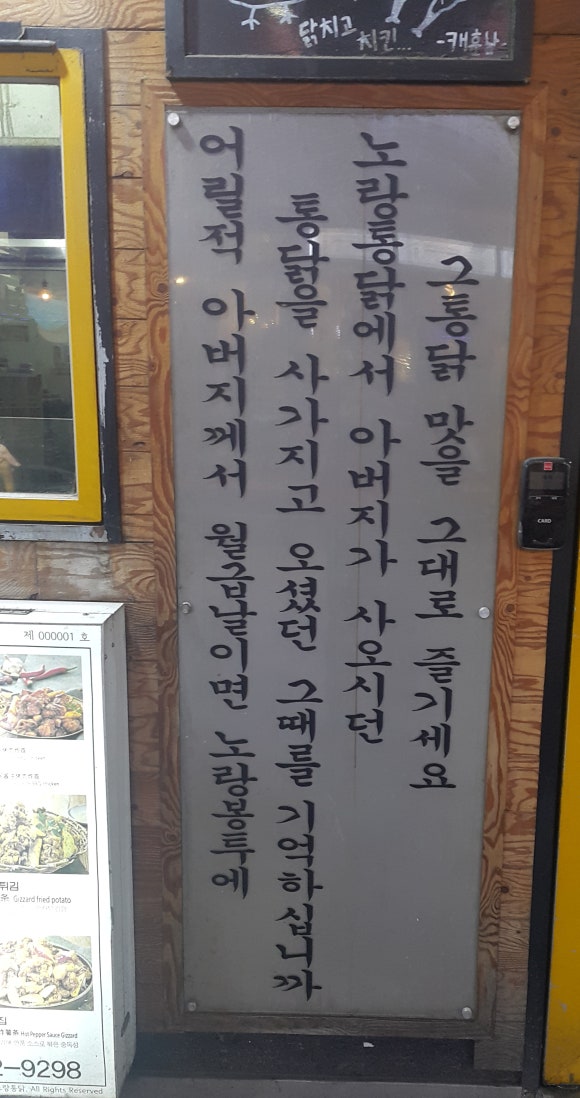 닭치고
치킨... -캐훈남-
어릴적 아버지께서 월급날이면 노랑봉투에
통닭을 사가지고 오셨던 그때를 기억하십니까
노랑통닭에서 아버지가 사오시던
그통닭 맛을 그대로 즐기세요
CARD
제 000001 호
튀김
条 Gizzard fried potato
Hot Pepper Sauce Gizzard
2-9298
랑통닭. All Rights Reserved